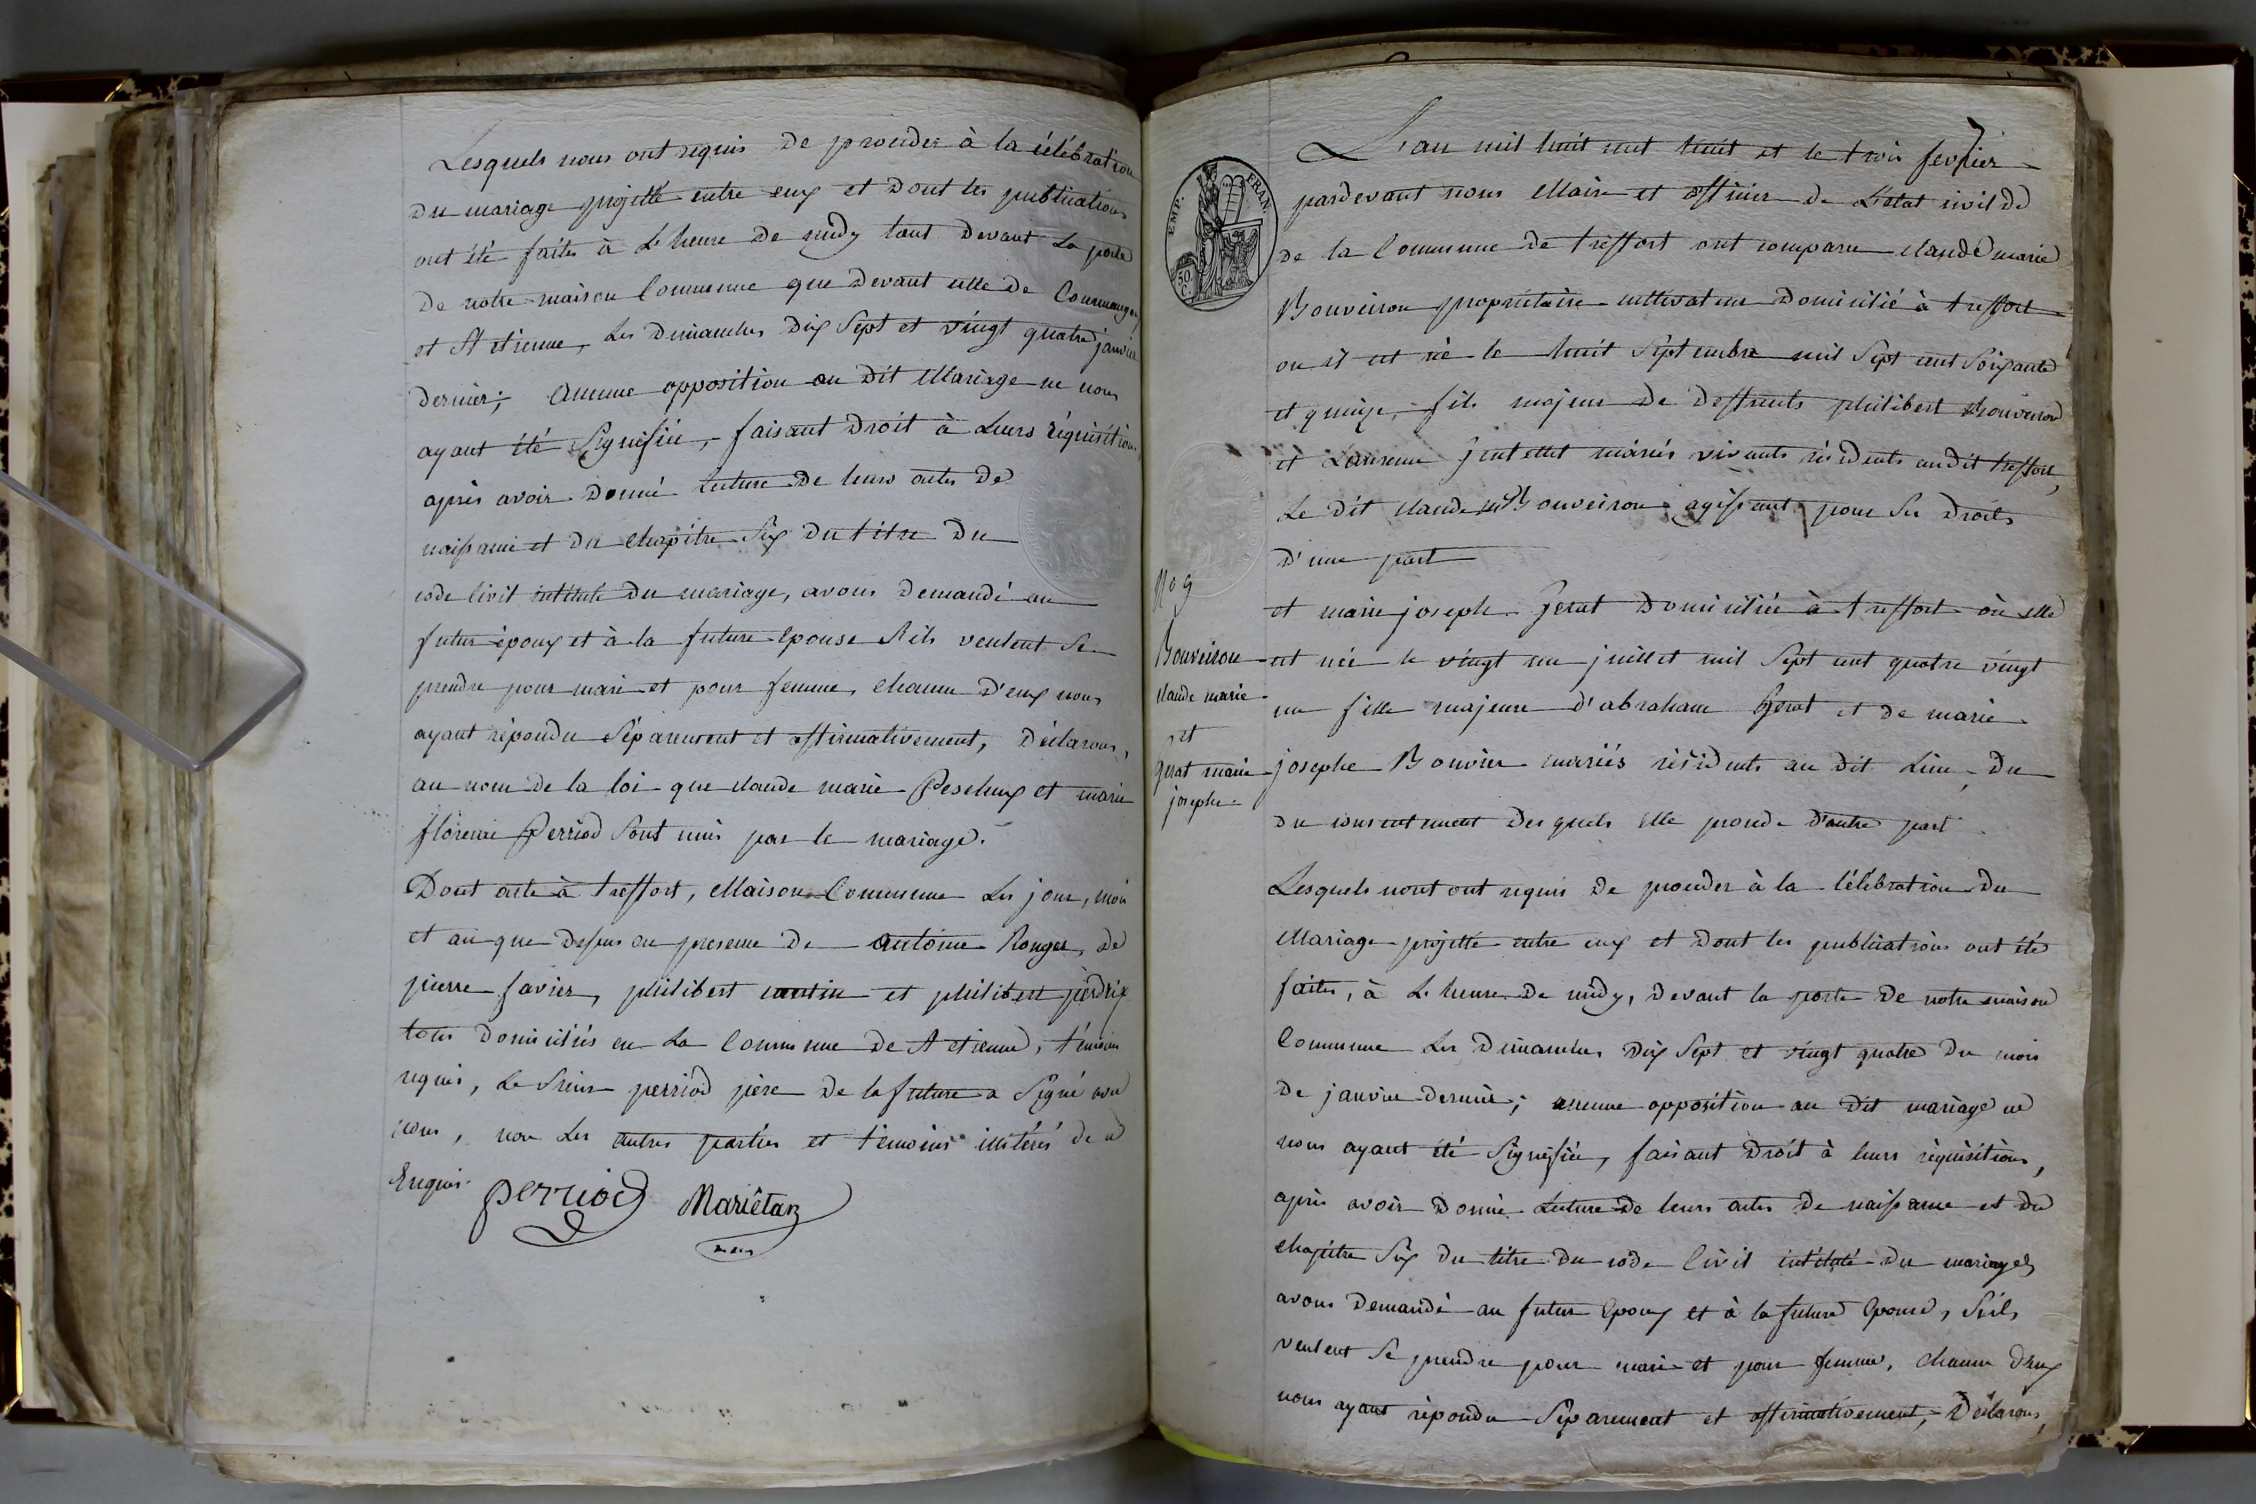 Lesquels nous ont requis de proceder à la célébration
du mariage projetté entre eux et dont les publications
ont été faites à L'heure de midy tant devant La porte
de notre maison Commune que devant celle de
et St etienne, Les dimanches dix Sept et vingt quatre janvier
dernier; Aucune opposition au dit Mariage ne nous
ayant été Signifiée, faisant droit à Leurs réquisitions
après avoir donné Lecture de leurs actes de
naissance et du Chapitre Six du titre du
code Civil intitulé du mariage, avons demandé au
futur époux et à la future Epouse S'ils veulent Se
prendre pour mari et pour femme, chacun d'eux nous
ayant répondu Séparement et affirmativement, Déclarons,
au nom de la loi que claude marie Pescheux et marie
florence Perriod Sont unis par le mariage.
Dont acte à treffort, Maison Commune Les jour, mois
et an que dessus en presence de antoine Ronger, de
pierre favier, philibert et philibert perdrix
tous domiciliés en La Commune de St etienne, témoins
requis, Le Sieur perriod père de la future a Signé avec
nous, non Les autres parties et témoins illitérés de ce
Enquis.
Perriod Mariêtan
EMP. FRAN.
50 C.
L'an mil huit cent huit et le trois fevrier
pardevant nous Maire et officier de L'Etat civil de
de la Commune de treffort ont comparu claude marie
Bouveiron propriétaire cultivateur domicilié à treffort
ou il est né le huit Septembre mil Sept cent Soixante
et quinze, fils majeur de deffunts philibert Bouveiron
et Laurence mariés vivants résidents audit treffort,
Le dit claude Mie Bouveiron agissant pour Ses droits
d'une part
No 9
Bouveiron
claude marie
et
Gerat marie
josephe
et marie joseph Gerat domiciliée à treffort où elle
est née le vingt un juillet mil Sept cent quatre vingt
un fille majeure d'abraham Gerat et de marie
josephe Bouvier mariés résidents au dit Lieu, du
du consentement desquels elle procede d'autre part
Lesquels nont ont requis de proceder à la Célébration du
Mariage projetté entre eux et dont les publications ont été
faites, à L'heure de midy, devant la porte de notre maison
Commune Les dimanches dix Sept et vingt quatre du mois
de janvier dernier; aucune opposition au dit mariage ne
nous ayant été Signifiée, faisant droit à leurs réquisitions,
après avoir donné Lecture de leurs actes de naissance et du
chapitre Six du titre du code Civil intitulé du mariage,
avons demandé au futur Epoux et à la future Epouse, S'ils
veulent Se prendre pour mari et pour femme, chacun d'eux
nous ayant répondu Séparement et affirmativement, Déclarons,